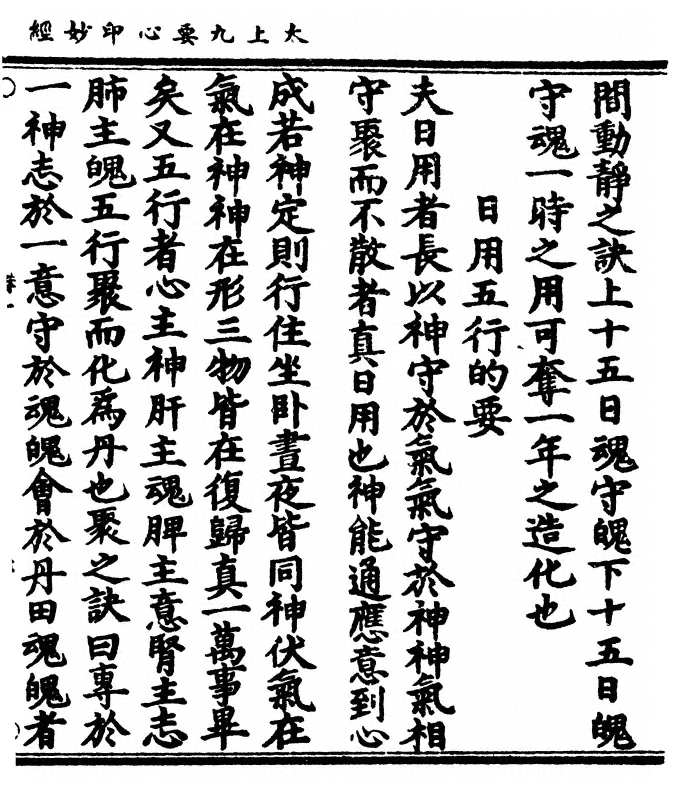 太上九要心印妙經
間動靜之訣上十五日魂守魄下十五日魄
守魂一時之用可奪一年之造化也
日用五行的要
夫日用者長以神守於氣氣守於神神氣相
守聚而不散者真日用也神能通應意到心
成若神定則行住坐卧晝夜皆同神伏氣在
氣在神神在形三物皆在復歸真一萬事畢
矣又五行者心主神肝主魂脾主意腎主志
肺主魄五行聚而化為丹也聚之訣曰專於
一神志於一意守於魂魄會於丹田魂魄者